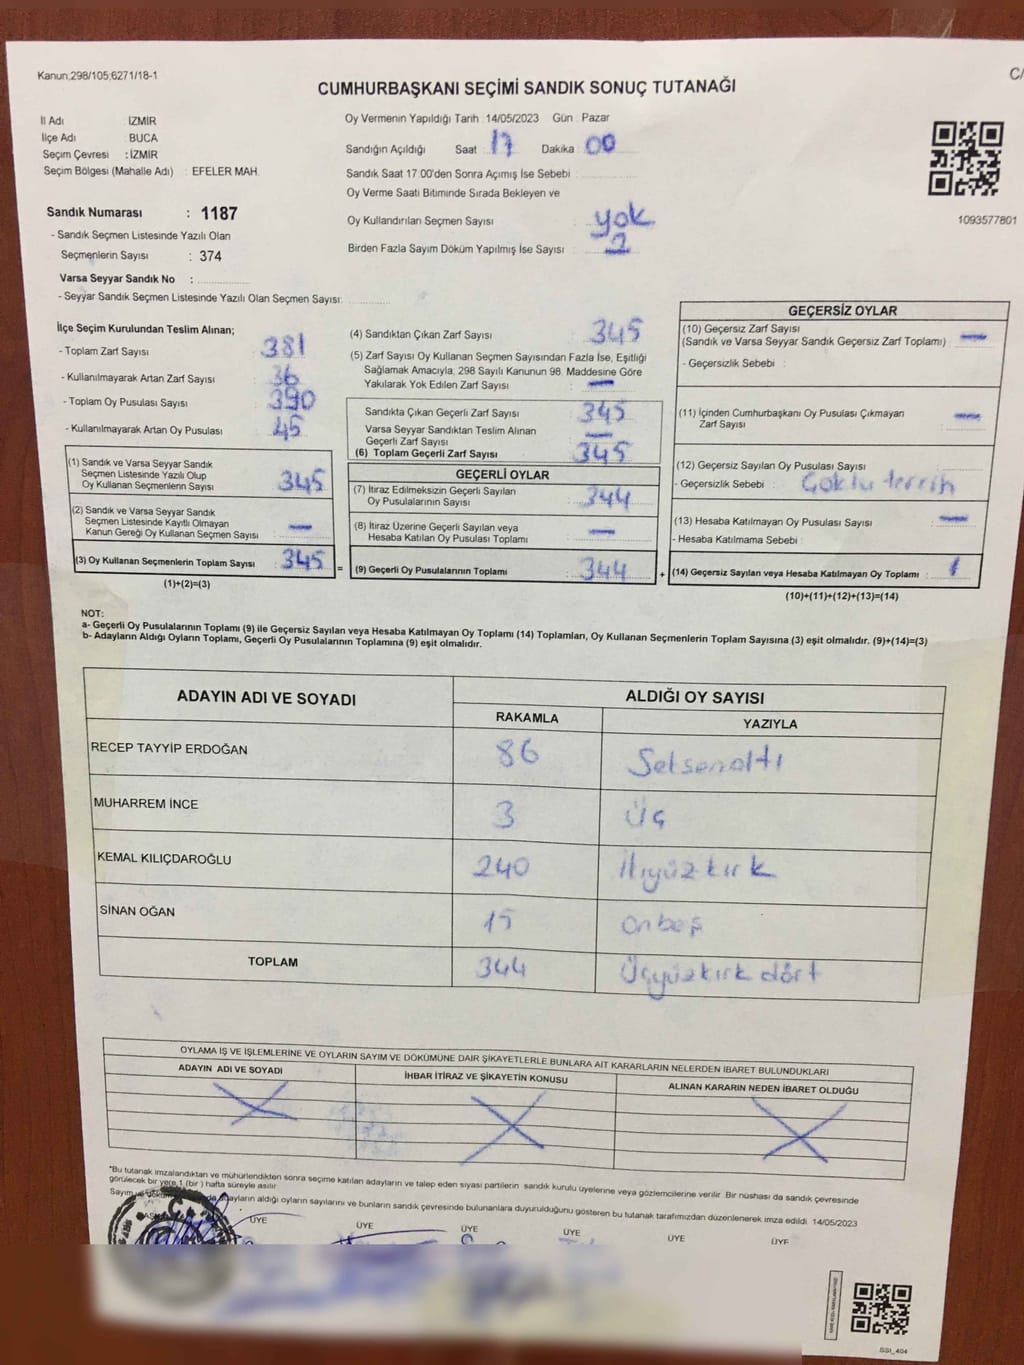 Kanun;298/105;6271/18-1
C/
CUMHURBAŞKANI SEÇİMİ SANDIK SONUÇ TUTANAĞI
İl Adı : İZMİR
İlçe Adı : BUCA
Seçim Çevresi : İZMİR
Seçim Bölgesi (Mahalle Adı) : EFELER MAH.
Oy Vermenin Yapıldığı Tarih : 14/05/2023 Gün : Pazar
Sandığın Açıldığı Saat : 17 Dakika : 00
Sandık Saat 17:00'den Sonra Açımış İse Sebebi :
Oy Verme Saati Bitiminde Sırada Bekleyen ve
Oy Kullandırılan Seçmen Sayısı : yok
Birden Fazla Sayım Döküm Yapılmış İse Sayısı : 2
1093577801
Sandık Numarası : 1187
- Sandık Seçmen Listesinde Yazılı Olan
Seçmenlerin Sayısı : 374
Varsa Seyyar Sandık No :
- Seyyar Sandık Seçmen Listesinde Yazılı Olan Seçmen Sayısı:
İlçe Seçim Kurulundan Teslim Alınan;
- Toplam Zarf Sayısı : 381
- Kullanılmayarak Artan Zarf Sayısı : 36
- Toplam Oy Pusulası Sayısı : 390
- Kullanılmayarak Artan Oy Pusulası : 45
(1) Sandık ve Varsa Seyyar Sandık
Seçmen Listesinde Yazılı Olup
Oy Kullanan Seçmenlerin Sayısı : 345
(2) Sandık ve Varsa Seyyar Sandık
Seçmen Listesinde Kayıtlı Olmayan
Kanun Gereği Oy Kullanan Seçmen Sayısı : —
(3) Oy Kullanan Seçmenlerin Toplam Sayısı : 345
(1)+(2)=(3)
=
(4) Sandıktan Çıkan Zarf Sayısı : 345
(5) Zarf Sayısı Oy Kullanan Seçmen Sayısından Fazla İse, Eşitliği
Sağlamak Amacıyla, 298 Sayılı Kanunun 98. Maddesine Göre
Yakılarak Yok Edilen Zarf Sayısı : —
Sandıkta Çıkan Geçerli Zarf Sayısı : 345
Varsa Seyyar Sandıktan Teslim Alınan
Geçerli Zarf Sayısı : —
(6) Toplam Geçerli Zarf Sayısı : 345
GEÇERLİ OYLAR
(7) İtiraz Edilmeksizin Geçerli Sayılan
Oy Pusulalarının Sayısı : 344
(8) İtiraz Üzerine Geçerli Sayılan veya
Hesaba Katılan Oy Pusulası Toplamı : —
(9) Geçerli Oy Pusulalarının Toplamı : 344
+
GEÇERSİZ OYLAR
(10) Geçersiz Zarf Sayısı
(Sandık ve Varsa Seyyar Sandık Geçersiz Zarf Toplamı) : —
- Geçersizlik Sebebi :
(11) İçinden Cumhurbaşkanı Oy Pusulası Çıkmayan
Zarf Sayısı : —
(12) Geçersiz Sayılan Oy Pusulası Sayısı :
- Geçersizlik Sebebi : Çoklu tercih
(13) Hesaba Katılmayan Oy Pusulası Sayısı : —
- Hesaba Katılmama Sebebi :
(14) Geçersiz Sayılan veya Hesaba Katılmayan Oy Toplamı : 1
(10)+(11)+(12)+(13)=(14)
NOT:
a- Geçerli Oy Pusulalarının Toplamı (9) ile Geçersiz Sayılan veya Hesaba Katılmayan Oy Toplamı (14) Toplamları, Oy Kullanan Seçmenlerin Toplam Sayısına (3) eşit olmalıdır. (9)+(14)=(3)
b- Adayların Aldığı Oyların Toplamı, Geçerli Oy Pusulalarının Toplamına (9) eşit olmalıdır.
ADAYIN ADI VE SOYADI
ALDIĞI OY SAYISI
RAKAMLA YAZIYLA
RECEP TAYYİP ERDOĞAN 86 Seksenaltı
MUHARREM İNCE 3 Üç
KEMAL KILIÇDAROĞLU 240 İkiyüzkırk
SİNAN OĞAN 15 Onbeş
TOPLAM 344 Üçyüzkırk dört
OYLAMA İŞ VE İŞLEMLERİNE VE OYLARIN SAYIM VE DÖKÜMÜNE DAİR ŞİKAYETLERLE BUNLARA AİT KARARLARIN NELERDEN İBARET BULUNDUKLARI
ADAYIN ADI VE SOYADI İHBAR İTİRAZ VE ŞİKAYETİN KONUSU ALINAN KARARIN NEDEN İBARET OLDUĞU
*Bu tutanak imzalandıktan ve mühürlendikten sonra seçime katılan adayların ve talep eden siyasi partilerin sandık kurulu üyelerine veya gözlemcilerine verilir. Bir nüshası da sandık çevresinde
görülecek bir yere 1 (bir ) hafta süreyle asılır.
Sayım adayların aldığı oyların sayılarını ve bunların sandık çevresinde bulunanlara duyurulduğunu gösteren bu tutanak tarafımızdan düzenlenerek imza edildi. 14/05/2023
ÜYE ÜYE ÜYE ÜYE ÜYE ÜYE
SSI_404